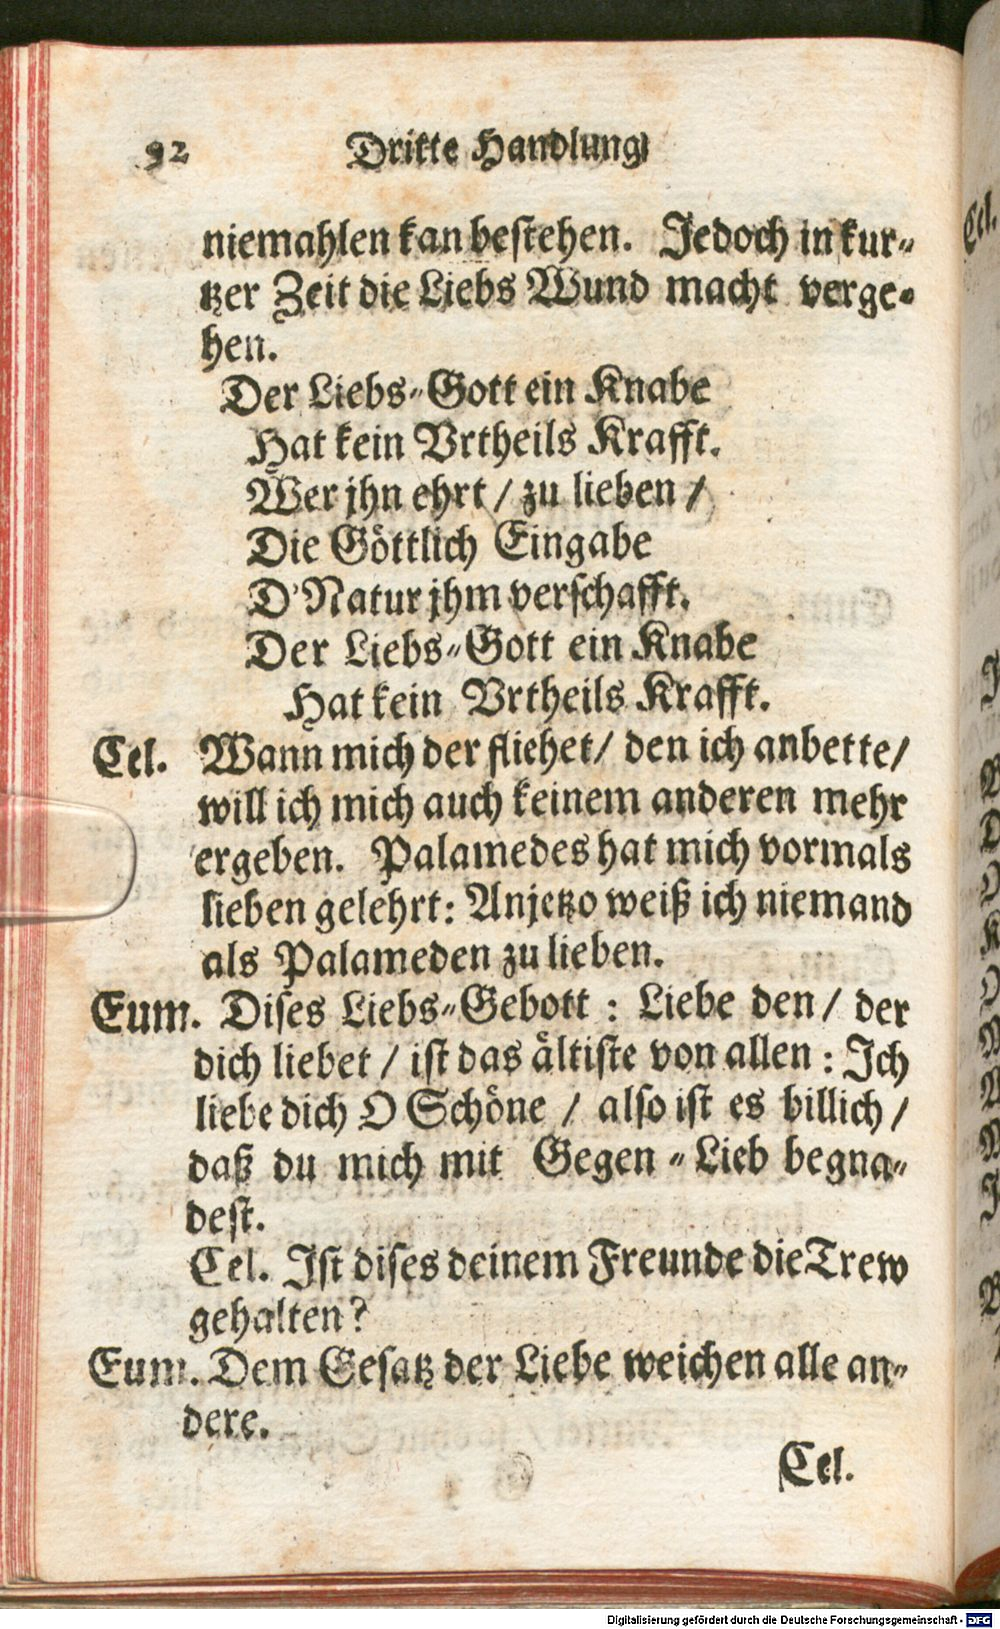 92 Dritte Handlung
niemahlen kan bestehen. Jedoch in kur-
tzer Zeit die Liebs Wund macht verge-
hen.
Der Liebs-Gott ein Knabe
Hat kein Vrtheils Krafft.
Wer jhn ehrt / zu lieben /
Die Göttlich Eingabe
D'Natur jhm verschafft.
Der Liebs-Gott ein Knabe
Hat kein Vrtheils Krafft.
Cel. Wann mich der fliehet / den ich anbette /
will ich mich auch keinem anderen mehr
ergeben. Palamedes hat mich vormals
lieben gelehrt: Anjetzo weiß ich niemand
als Palameden zu lieben.
Eum. Dises Liebs-Gebott : Liebe den / der
dich liebet / ist das ältiste von allen : Ich
liebe dich O Schöne / also ist es billich /
daß du mich mit Gegen-Lieb begna-
dest.
Cel. Ist dises deinem Freunde die Trew
gehalten?
Eum. Dem Gesatz der Liebe weichen alle an-
dere.
Cel.
Cel.
Digitalisierung gefördert durch die Deutsche Forschungsgemeinschaft - DFG